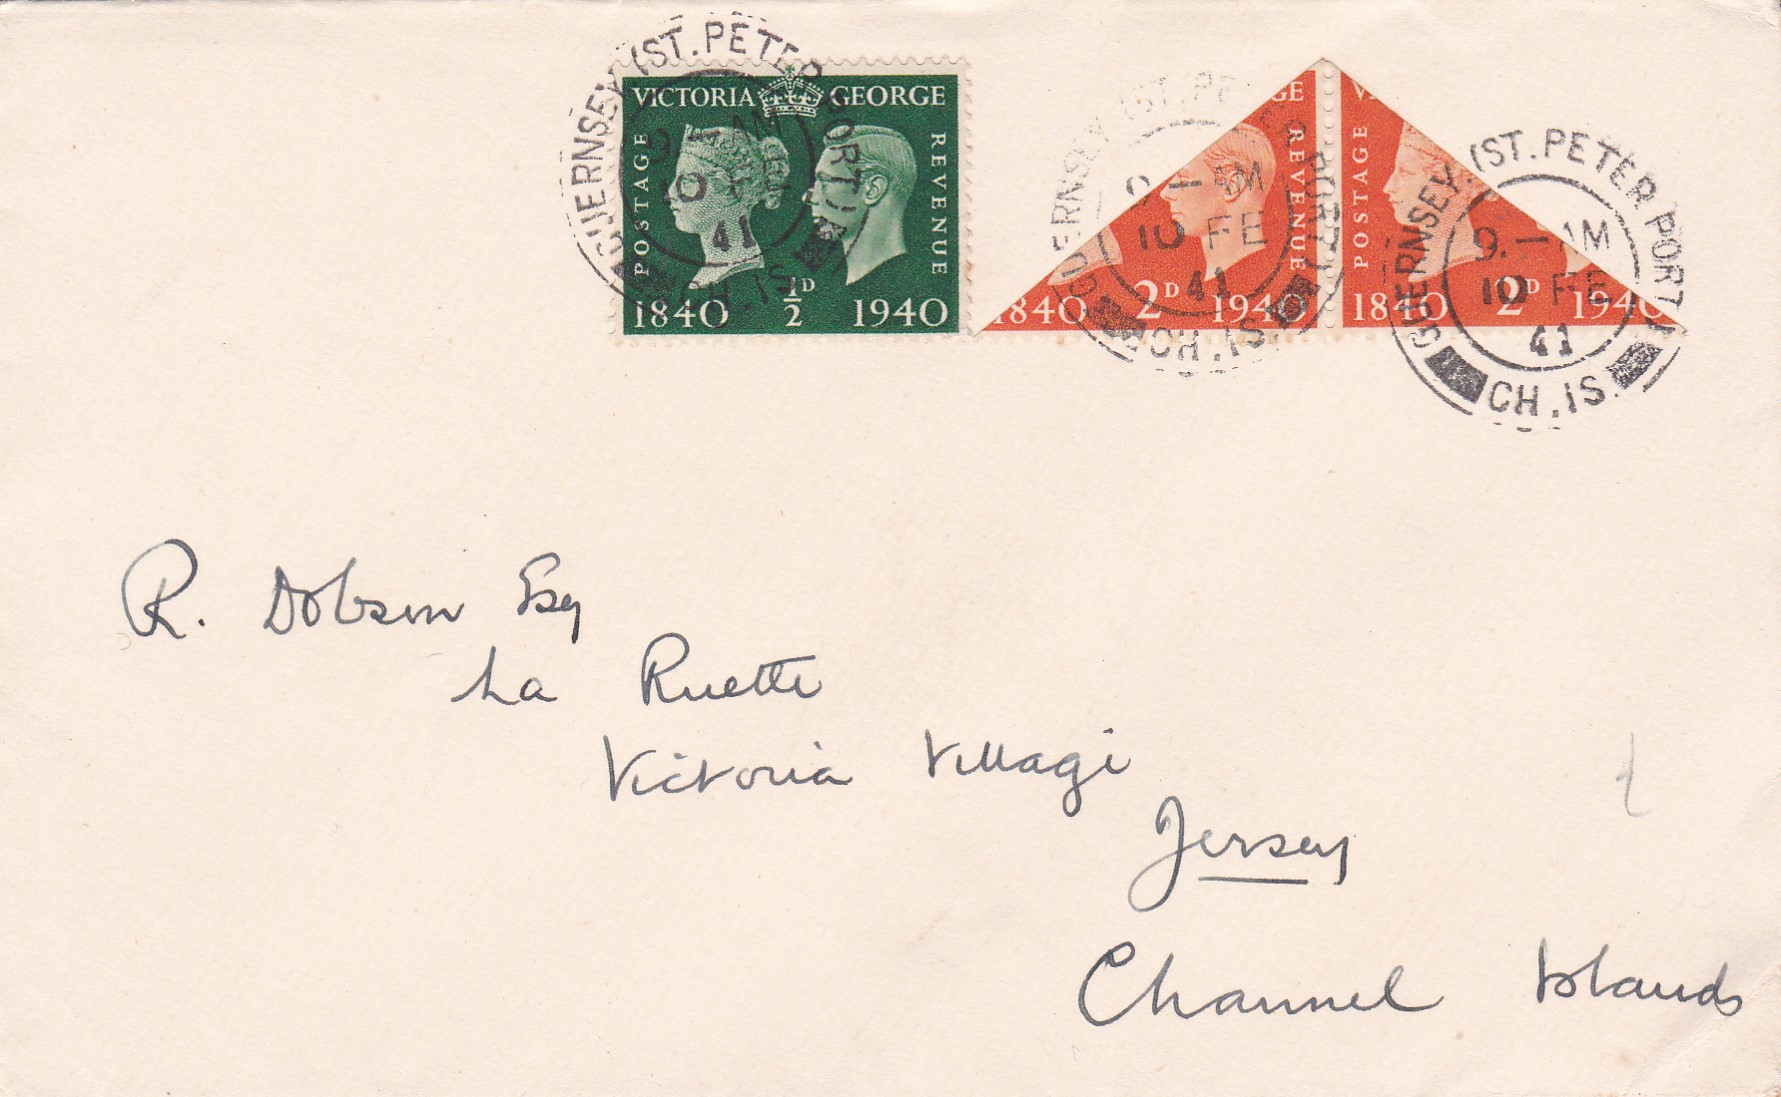 GUERNSEY (ST. PETER PORT) CH. IS.
9. — AM
10
41
VICTORIA GEORGE
POSTAGE
REVENUE
1840 ½D 1940
GUERNSEY (ST. PETER PORT) CH. IS.
9. — AM
10 FE
41
GE
REVENUE
1840 2D 1940
GUERNSEY (ST. PETER PORT) CH. IS.
9. — AM
10 FE
41
V
POSTAGE
1840 2D 1940
R. Dobson Esq
La Ruette
Victoria Village
Jersey
Channel Islands